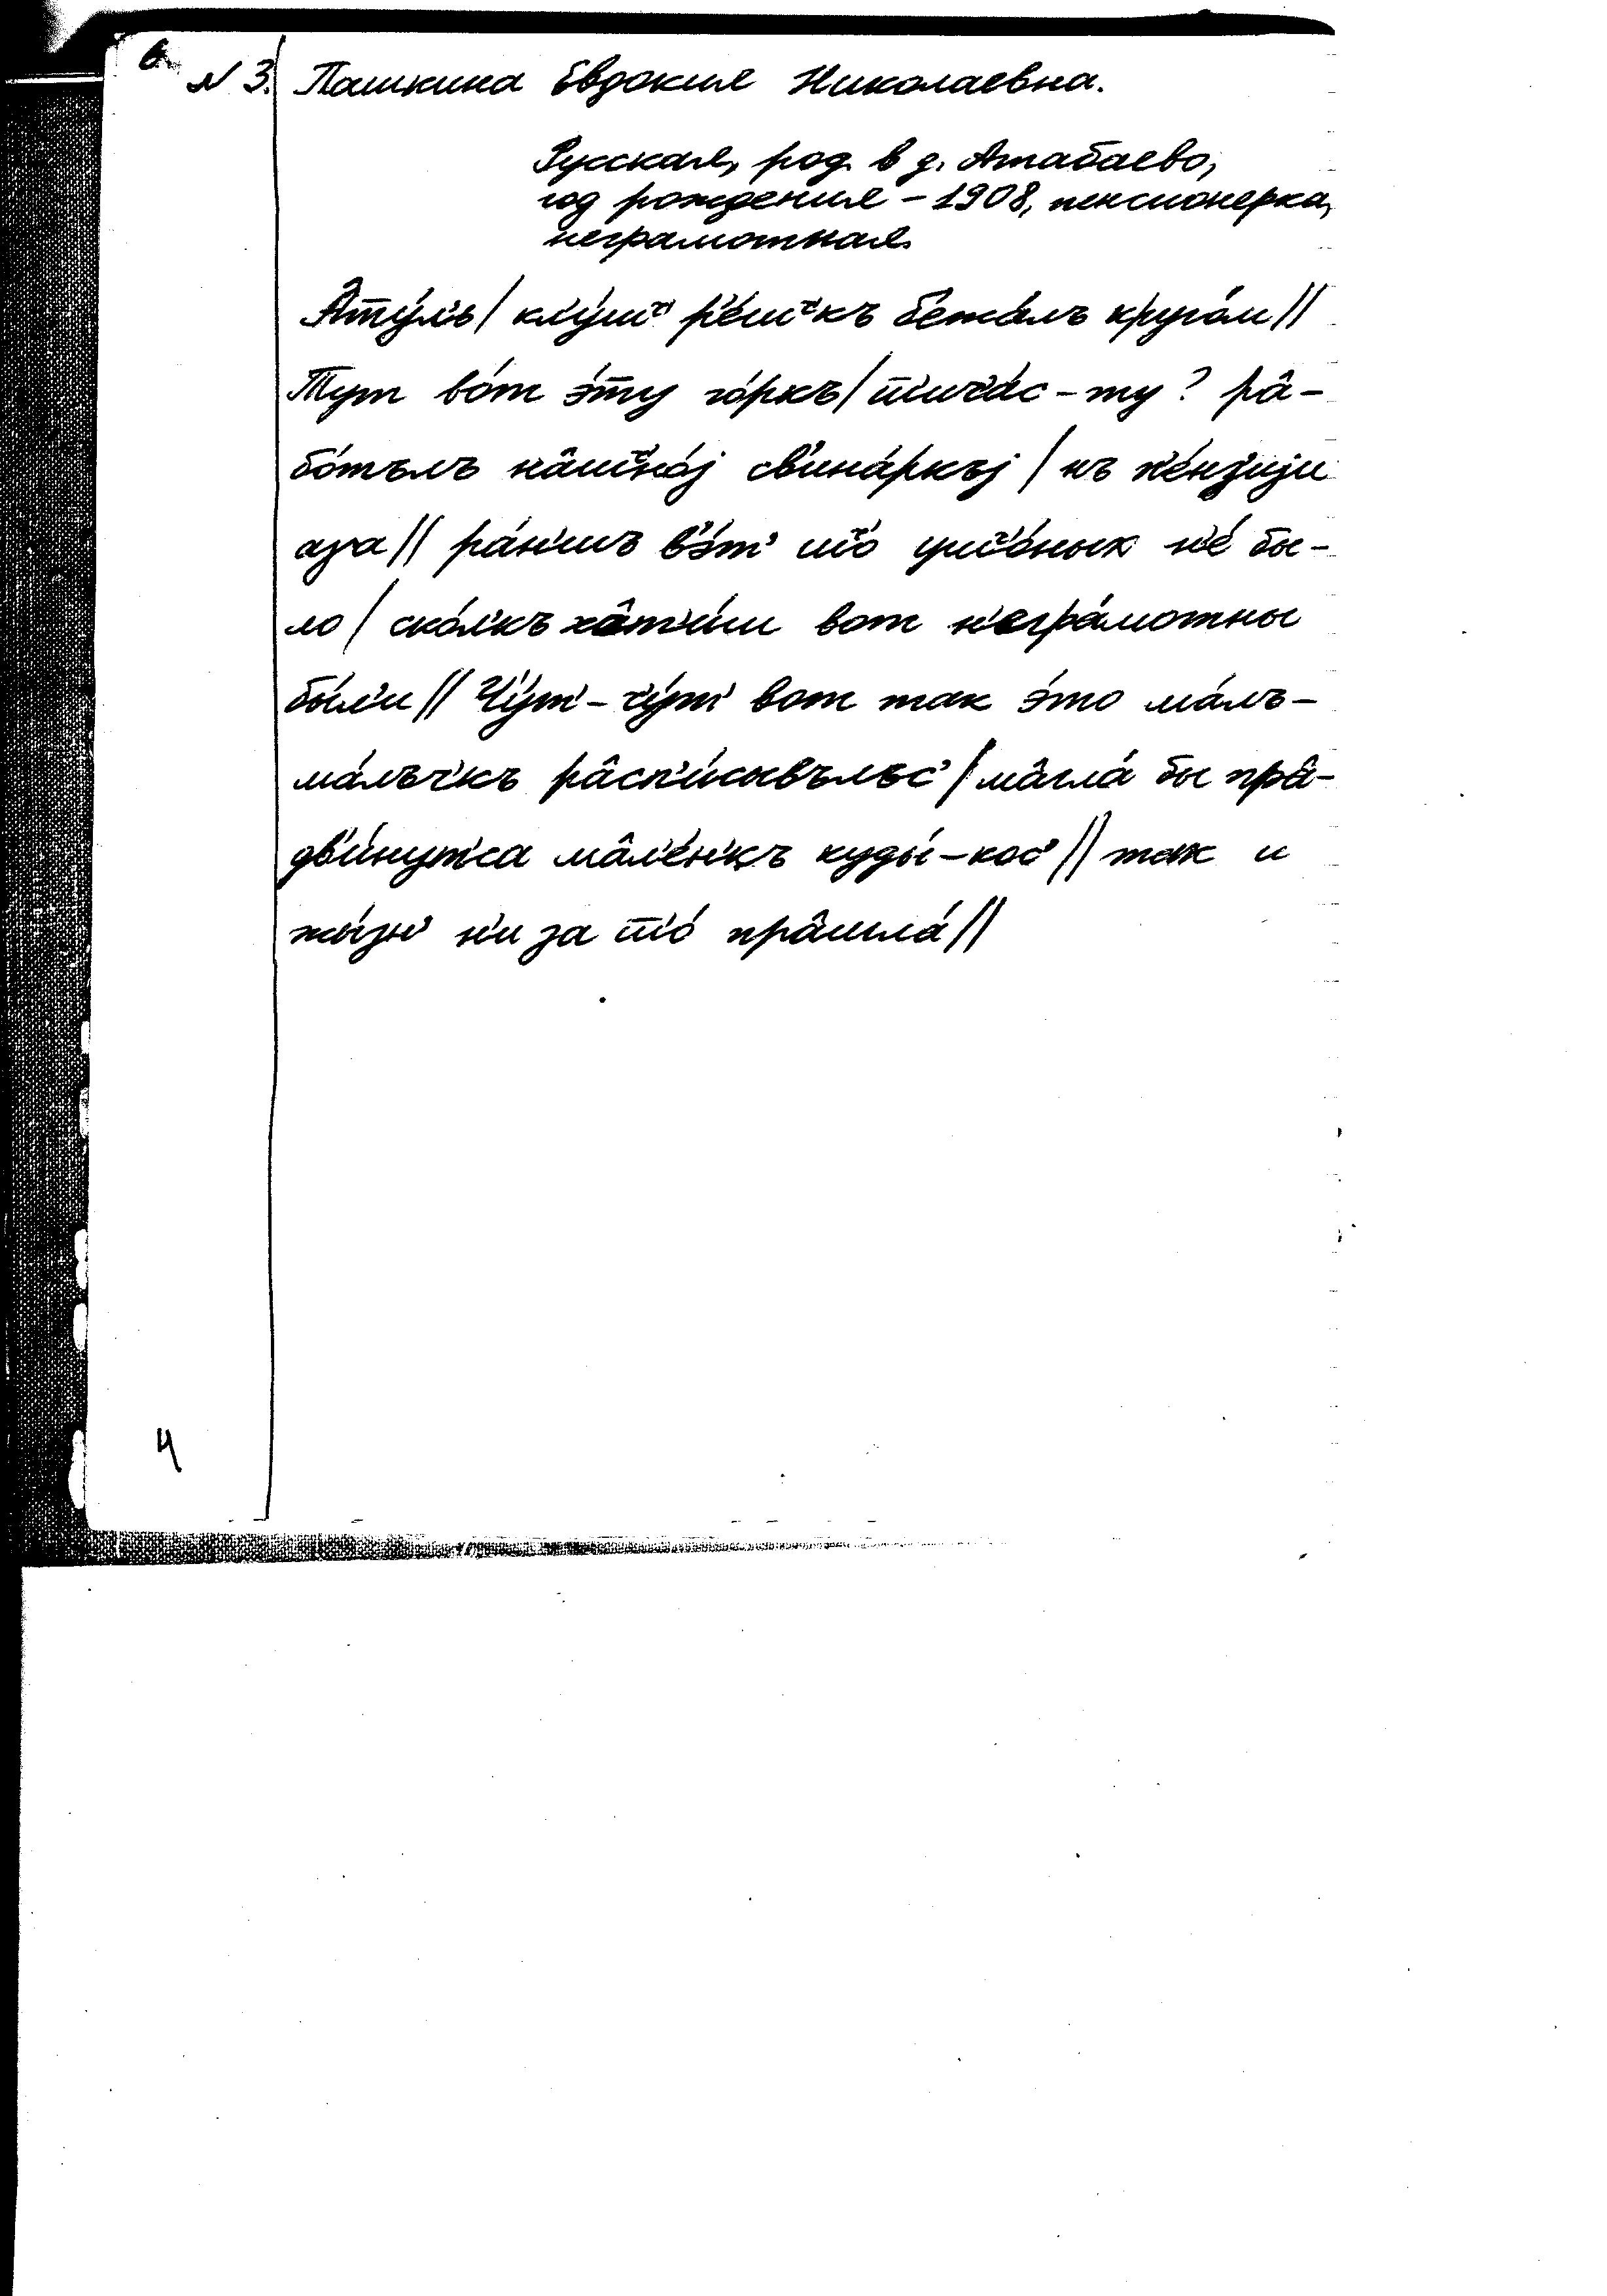 6.
№ 3. Пашкина Евдокия Николаевна.
Русская, род. в д. Атабаево,
год рождения – 1908, пенсионерка,
неграмотная.
кругом //
Тут во́т э́ту го́ркъ / рâ-
бо́тълъ св'ина́ркъј / нъ п'е́нзији
аза // ра́н'шъ в'э́т' што н'е́ бы-
ло / ско́л'къ хâт'и́ш вот н'егра́мотны
бы́л'и // Ч'у́т'-ч'у́т' вот так э́то ма́лъ-
ма́лъч'къ рâсп'и́сывълъс' / мâгла́ бы прâ-
дв'и́нут'са мâл'е́н'къ куды́-кос' // так и
жы́зн' н'и за што́ прâшла́ //
4